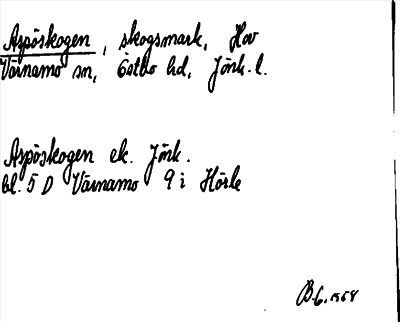 Aspöskogen, skogsmark, Hov
Värnamo sn, Östbo hd, Jönk. l.
Aspöskogen ek. Jönk.
bl. 5 D Värnamo 9 i Hörle
B.G. 1958